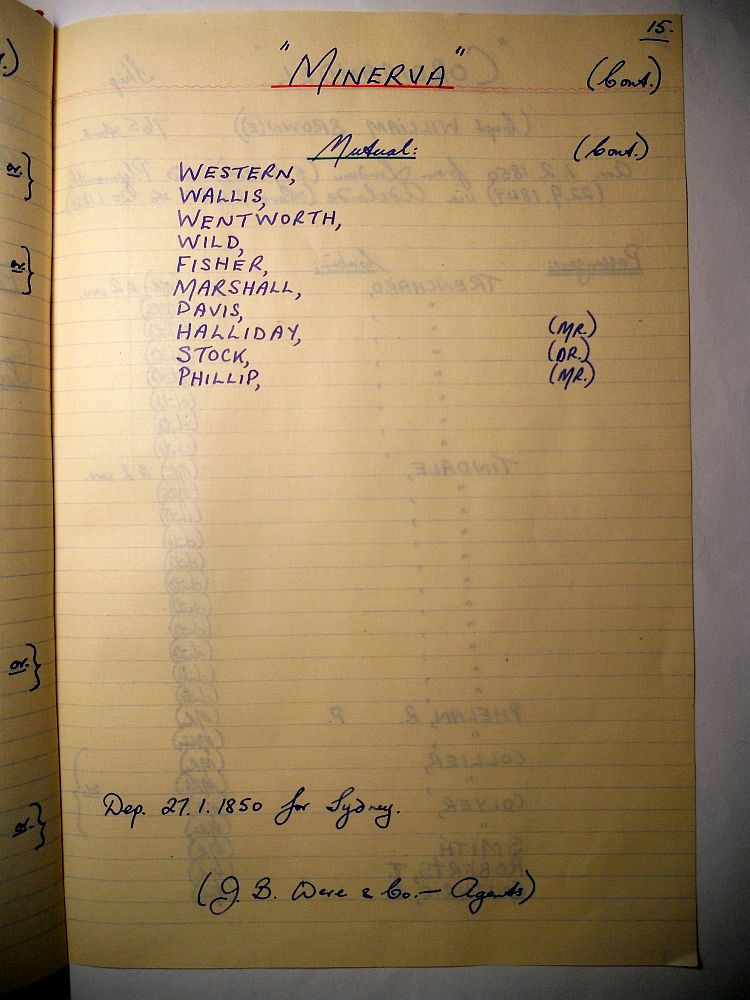 15.
"MINERVA" (Cont.)
Mutual: (Cont.)
WESTERN,
WALLIS,
WENTWORTH,
WILD,
FISHER,
MARSHALL,
DAVIS,
HALLIDAY, (MR.)
STOCK, (DR.)
PHILLIP, (MR.)
Dep. 27.1.1850 for Sydney.
(J. B. Were & Co. — Agents)
or.}
or.}
or.}
or.}